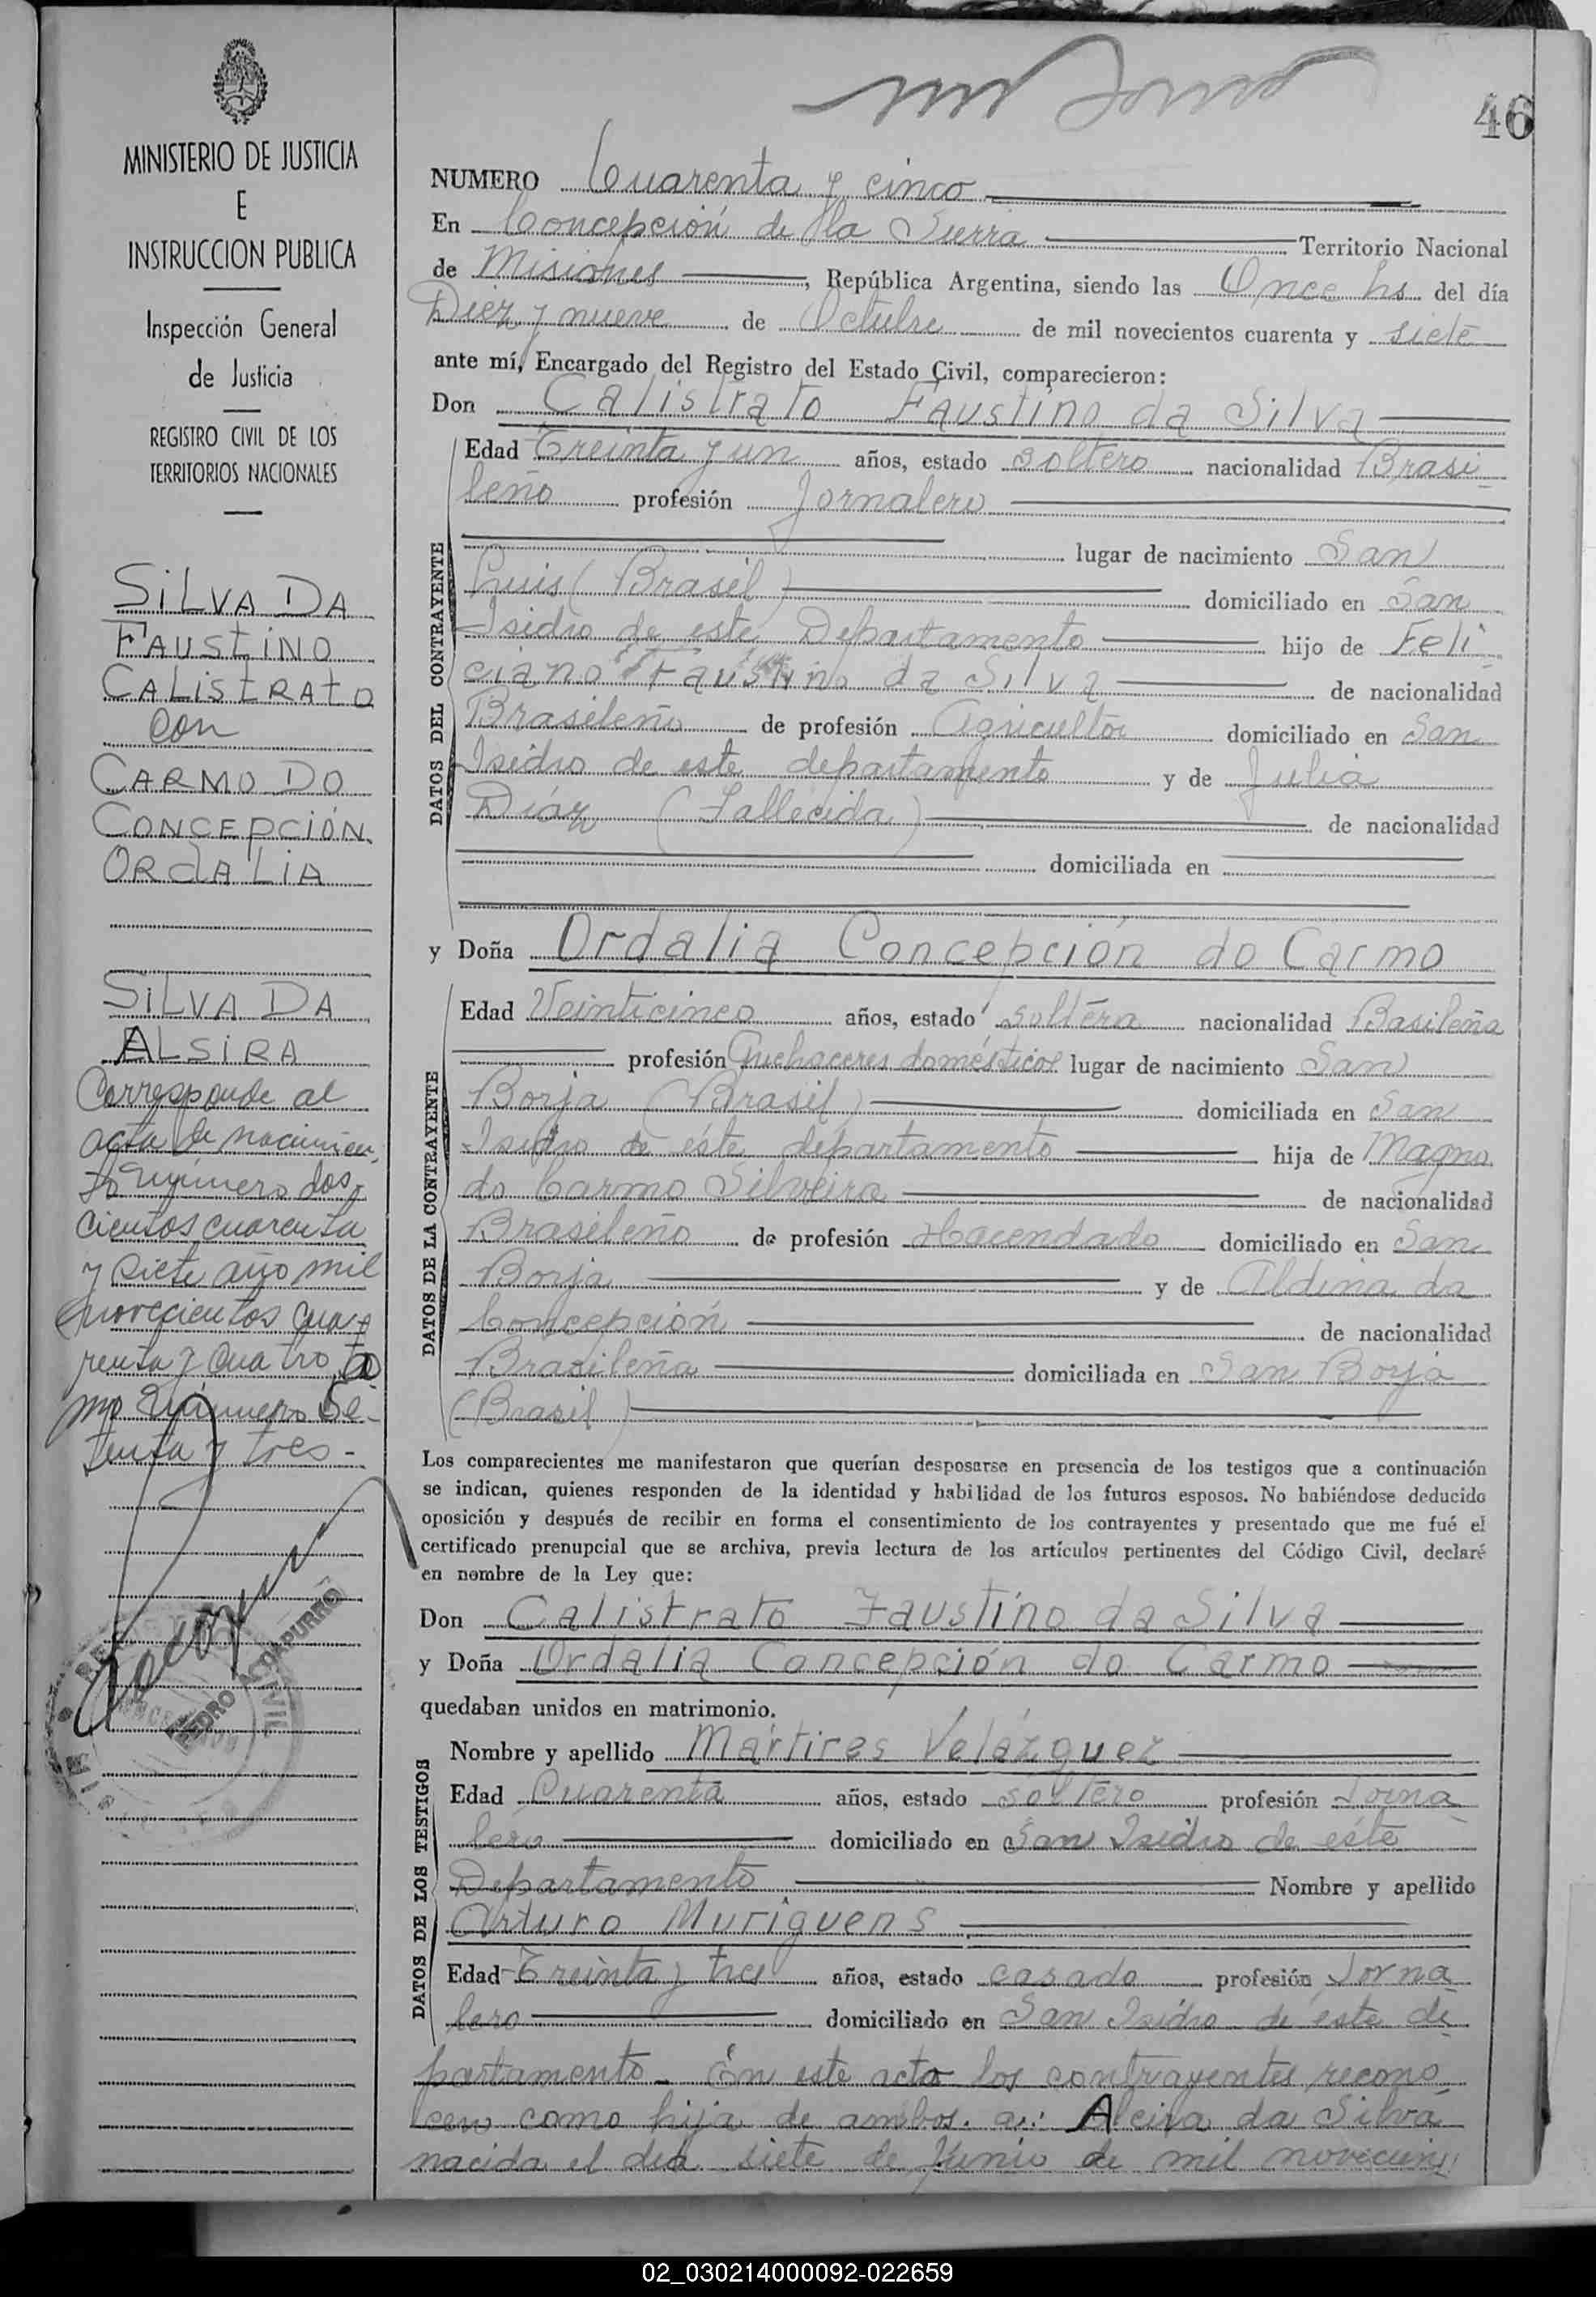 46
MINISTERIO DE JUSTICIA
E
INSTRUCCION PUBLICA
Inspección General
de Justicia
REGISTRO CIVIL DE LOS
TERRITORIOS NACIONALES
SILVA DA
FAUSTINO
CALISTRATO
con
CARMO DO
CONCEPCIÓN
ORdALIA
SILVA DA
ALSIRA
Corresponde al
acta de nacimien-
to número dos-
cientos cuarenta
y siete año mil
novecientos cua-
renta y cuatro to
mo número se-
tenta y tres-
PEDRO ACUAPURRO
NUMERO Cuarenta y cinco
En Concepción de la Sierra Territorio Nacional
de Misiones, República Argentina, siendo las Once hs del día
Diez y nueve de Octubre de mil novecientos cuarenta y siete
ante mí, Encargado del Registro del Estado Civil, comparecieron:
Don Calistrato Faustino da Silva
DATOS DEL CONTRAYENTE
Edad Treinta y un años, estado soltero nacionalidad Brasi-
leño profesión Jornalero
lugar de nacimiento San
Luis (Brasil) domiciliado en San
Isidro de este Departamento hijo de Feli-
ciano Faustino da Silva de nacionalidad
Brasileño de profesión Agricultor domiciliado en San
Isidro de este departamento y de Julia
Díaz (Fallecida) de nacionalidad
domiciliada en
y Doña Ordalia Concepción do Carmo
DATOS DE LA CONTRAYENTE
Edad Veinticinco años, estado soltera nacionalidad Basileña
profesión Quehaceres domésticos lugar de nacimiento San
Borja (Brasil) domiciliada en San
Isidro de éste departamento hija de Magno
do Carmo Silveira de nacionalidad
Brasileño de profesión Hacendado domiciliado en San
Borja y de Aldina da
Concepción de nacionalidad
Brasileña domiciliada en San Borja
(Brasil)
Los comparecientes me manifestaron que querían desposarse en presencia de los testigos que a continuación
se indican, quienes responden de la identidad y habilidad de los futuros esposos. No habiéndose deducido
oposición y después de recibir en forma el consentimiento de los contrayentes y presentado que me fué el
certificado prenupcial que se archiva, previa lectura de los artículos pertinentes del Código Civil, declaré
en nombre de la Ley que:
Don Calistrato Faustino da Silva
y Doña Ordalia Concepción do Carmo
quedaban unidos en matrimonio.
DATOS DE LOS TESTIGOS
Nombre y apellido Mártires Velázquez
Edad Cuarenta años, estado soltero profesión Jorna-
lero domiciliado en San Isidro de éste
Departamento Nombre y apellido
Arturo Muriguens
Edad Treinta y tres años, estado casado profesión Jorna
lero domiciliado en San Isidro de éste de-
partamento- En este acto los contrayentes recono-
cen como hija de ambos. a: Alcira da Silva
nacida el dia siete de Junio de mil novecien
02_030214000092-022659